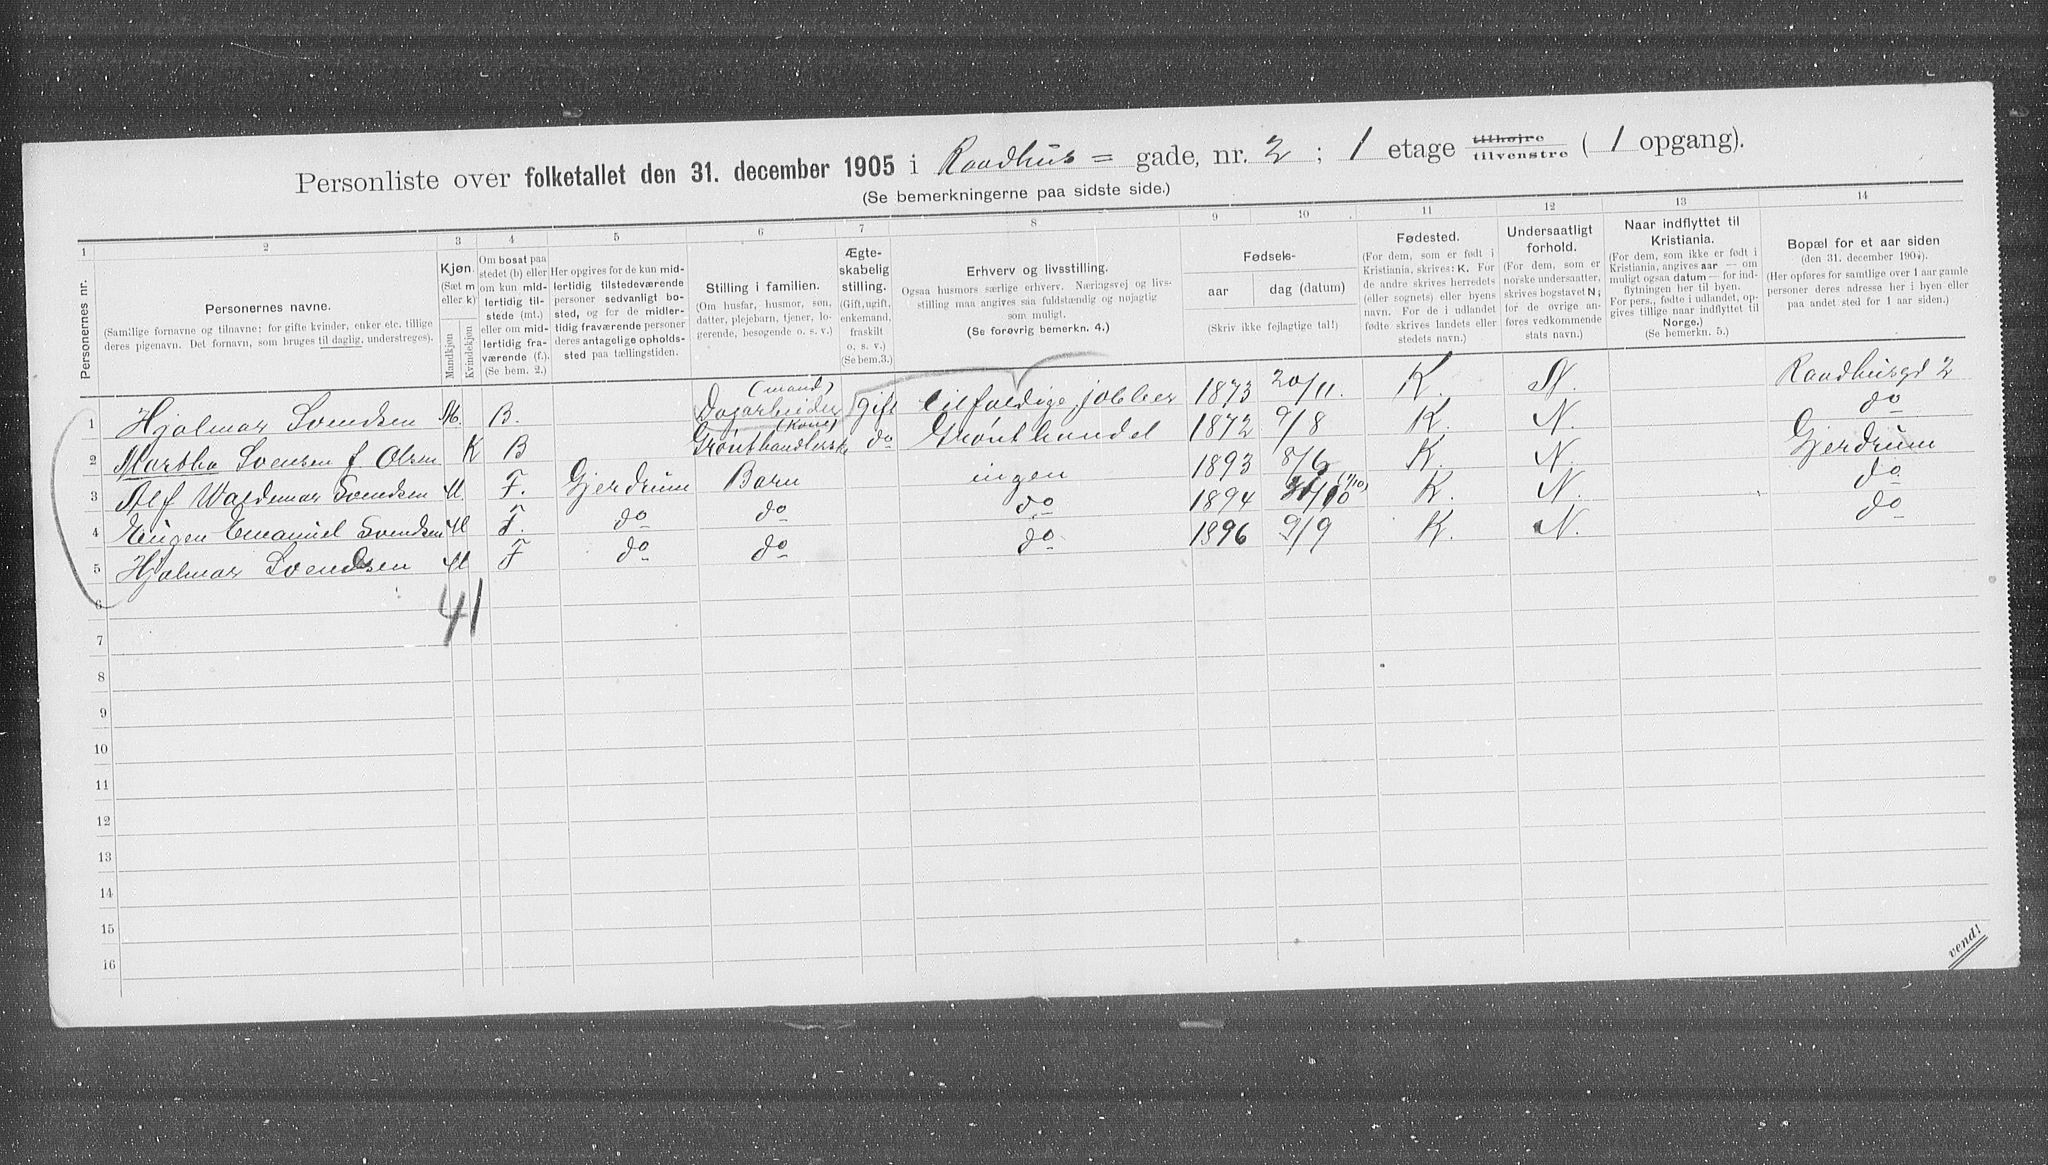 Personliste over folketallet den 31. december 1905 i Raadhus= gade, nr. 2 ; 1 etage tilhøjre tilvenstre ( 1 opgang).
(Se bemerkningerne paa sidste side.)
1 2 3 4 5 6 7 8 9 10 11 12 13 14
Personernes nr.
Personernes navne.
(Samtlige fornavne og tilnavne; for gifte kvinder, enker etc. tillige
deres pigenavn. Det fornavn, som bruges til daglig, understreges).
Kjøn.
(Sæt m
eller k)
Mandkjøn
Kvindekjøn
Om bosat paa
stedet (b) eller
om kun midlertidig tilstede (mt.)
eller om midlertidig fraværende (f.).
(Se bem. 2.)
Her opgives for de kun midlertidig tilstedeværende
personer sedvanligt bosted, og for de midlertidig fraværende personer
deres antagelige opholdssted paa tællingstiden.
Stilling i familien.
(Om husfar, husmor, søn,
datter, plejebarn, tjener, logerende, besøgende o. s. v.)
Ægteskabelig
stilling.
(Gift, ugift,
enkemand,
fraskilt
o. s. v.)
(Se bem.3.)
Erhverv og livsstilling.
Ogsaa husmors særlige erhverv. Næringsvej og livsstilling maa angives saa fuldstændig og nøjagtig
som muligt.
(Se forøvrig bemerkn. 4.)
Fødsels-
aar dag (datum)
(Skriv ikke fejlagtige tal!)
Fødested.
(For dem, som er født i
Kristiania, skrives: K. For
de andre skrives herredets
(eller sognets) eller byens
navn. For de i udlandet
fødte skrives landets eller
stedets navn.)
Undersaatligt
forhold.
(For dem, som er
norske undersaatter,
skrives bogstavet N;
for de øvrige anføres vedkommende
stats navn.)
Naar indflyttet til
Kristiania.
(For dem, som ikke er født i
Kristiania, angives aar — om
muligt ogsaa datum — for indflytningen her til byen.
For pers., fødte i udlandet, opgives tillige naar indflyttet til
Norge.)
(Se bemerkn. 5.)
Bopæl for et aar siden
(den 31. december 1904.)
(Her opføres for samtlige over 1 aar gamle
personer deres adresse her i byen eller
paa andet sted for 1 aar siden.)
1 Hjalmar Svendsen M. B. Dagarbeider (mand) gift tilfældige jobber 1873 20/11. K. N. Raadhusgd 2
2 Martha Svensen f Olsen K B Grønthandlerske (Kone) do Grønthandel 1872 9/8 K. N. do
3 Alf Waldemar Svendsen M. F. Gjerdrum Barn ingen 1893 8/6 K. N. Gjerdrum
4 Eugen Emanuel Svendsen M F. do do do 1894 (1/10) K. N. do
5 Hjalmar Svendsen M F do do do 1896 9/9 K. N. do
6
41
7
8
9
10
11
12
13
14
15
16
vend!